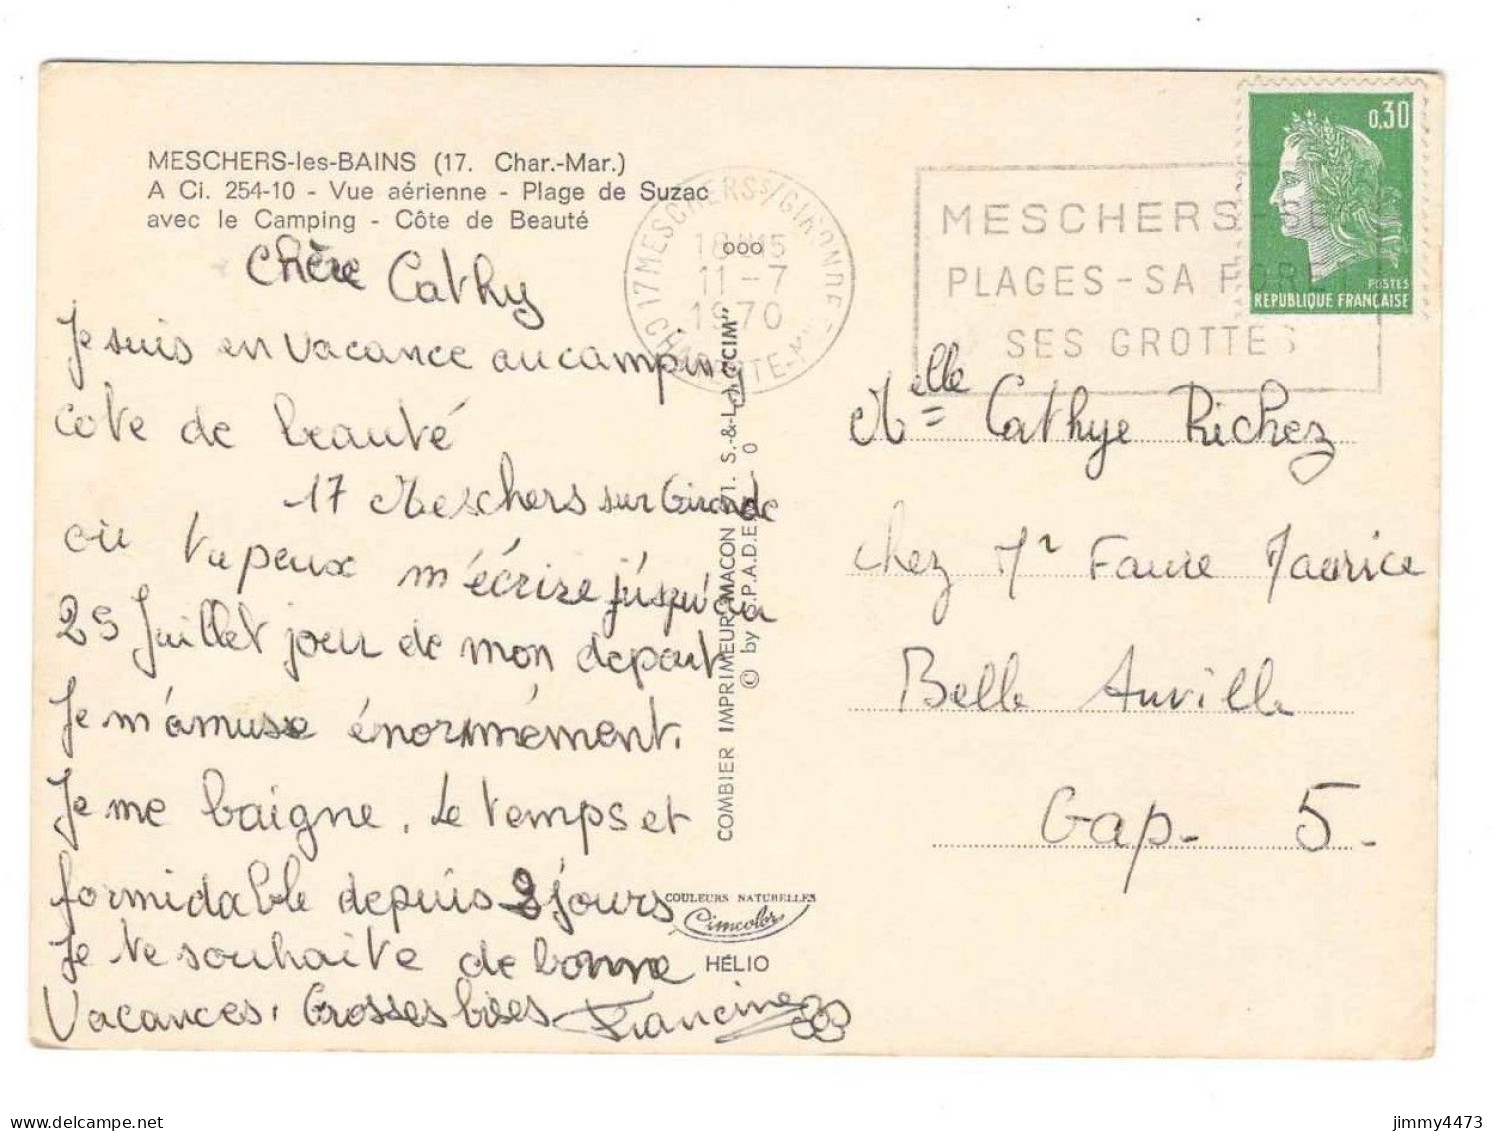 MESCHERS-les-BAINS (17. Char.-Mar.)
A Ci. 254-10 - Vue aérienne - Plage de Suzac
avec le Camping - Côte de Beauté
Chère Cathy
Je suis en vacance au camping
cote de beauté
17 Meschers sur Gironde
où tu peux m'écrire jusqu'au
25 Juillet jour de mon depart
Je m'amuse énormément.
Je me baigne. Le temps et
formidable depuis 2 jours
Je te souhaite de bonne
Vacances. Grosses bises Francine
17 MESCHERS S/GIRONDE
15
11-7
1970
MESCHERS-SE
PLAGES-SA FORE
SES GROTTES
0,30
POSTES
REPUBLIQUE FRANÇAISE
COMBIER IMPRIMEUR MACON (71. S.-&-L.) "CIM"
© by S.P.A.D.E.M. 0
COULEURS NATURELLES
Cimcolor
HÉLIO
Melle Cathye Richez
chez Mr Faure Maurice
Belle Auville
Gap - 5 -
jimmy4473
delcampe.net